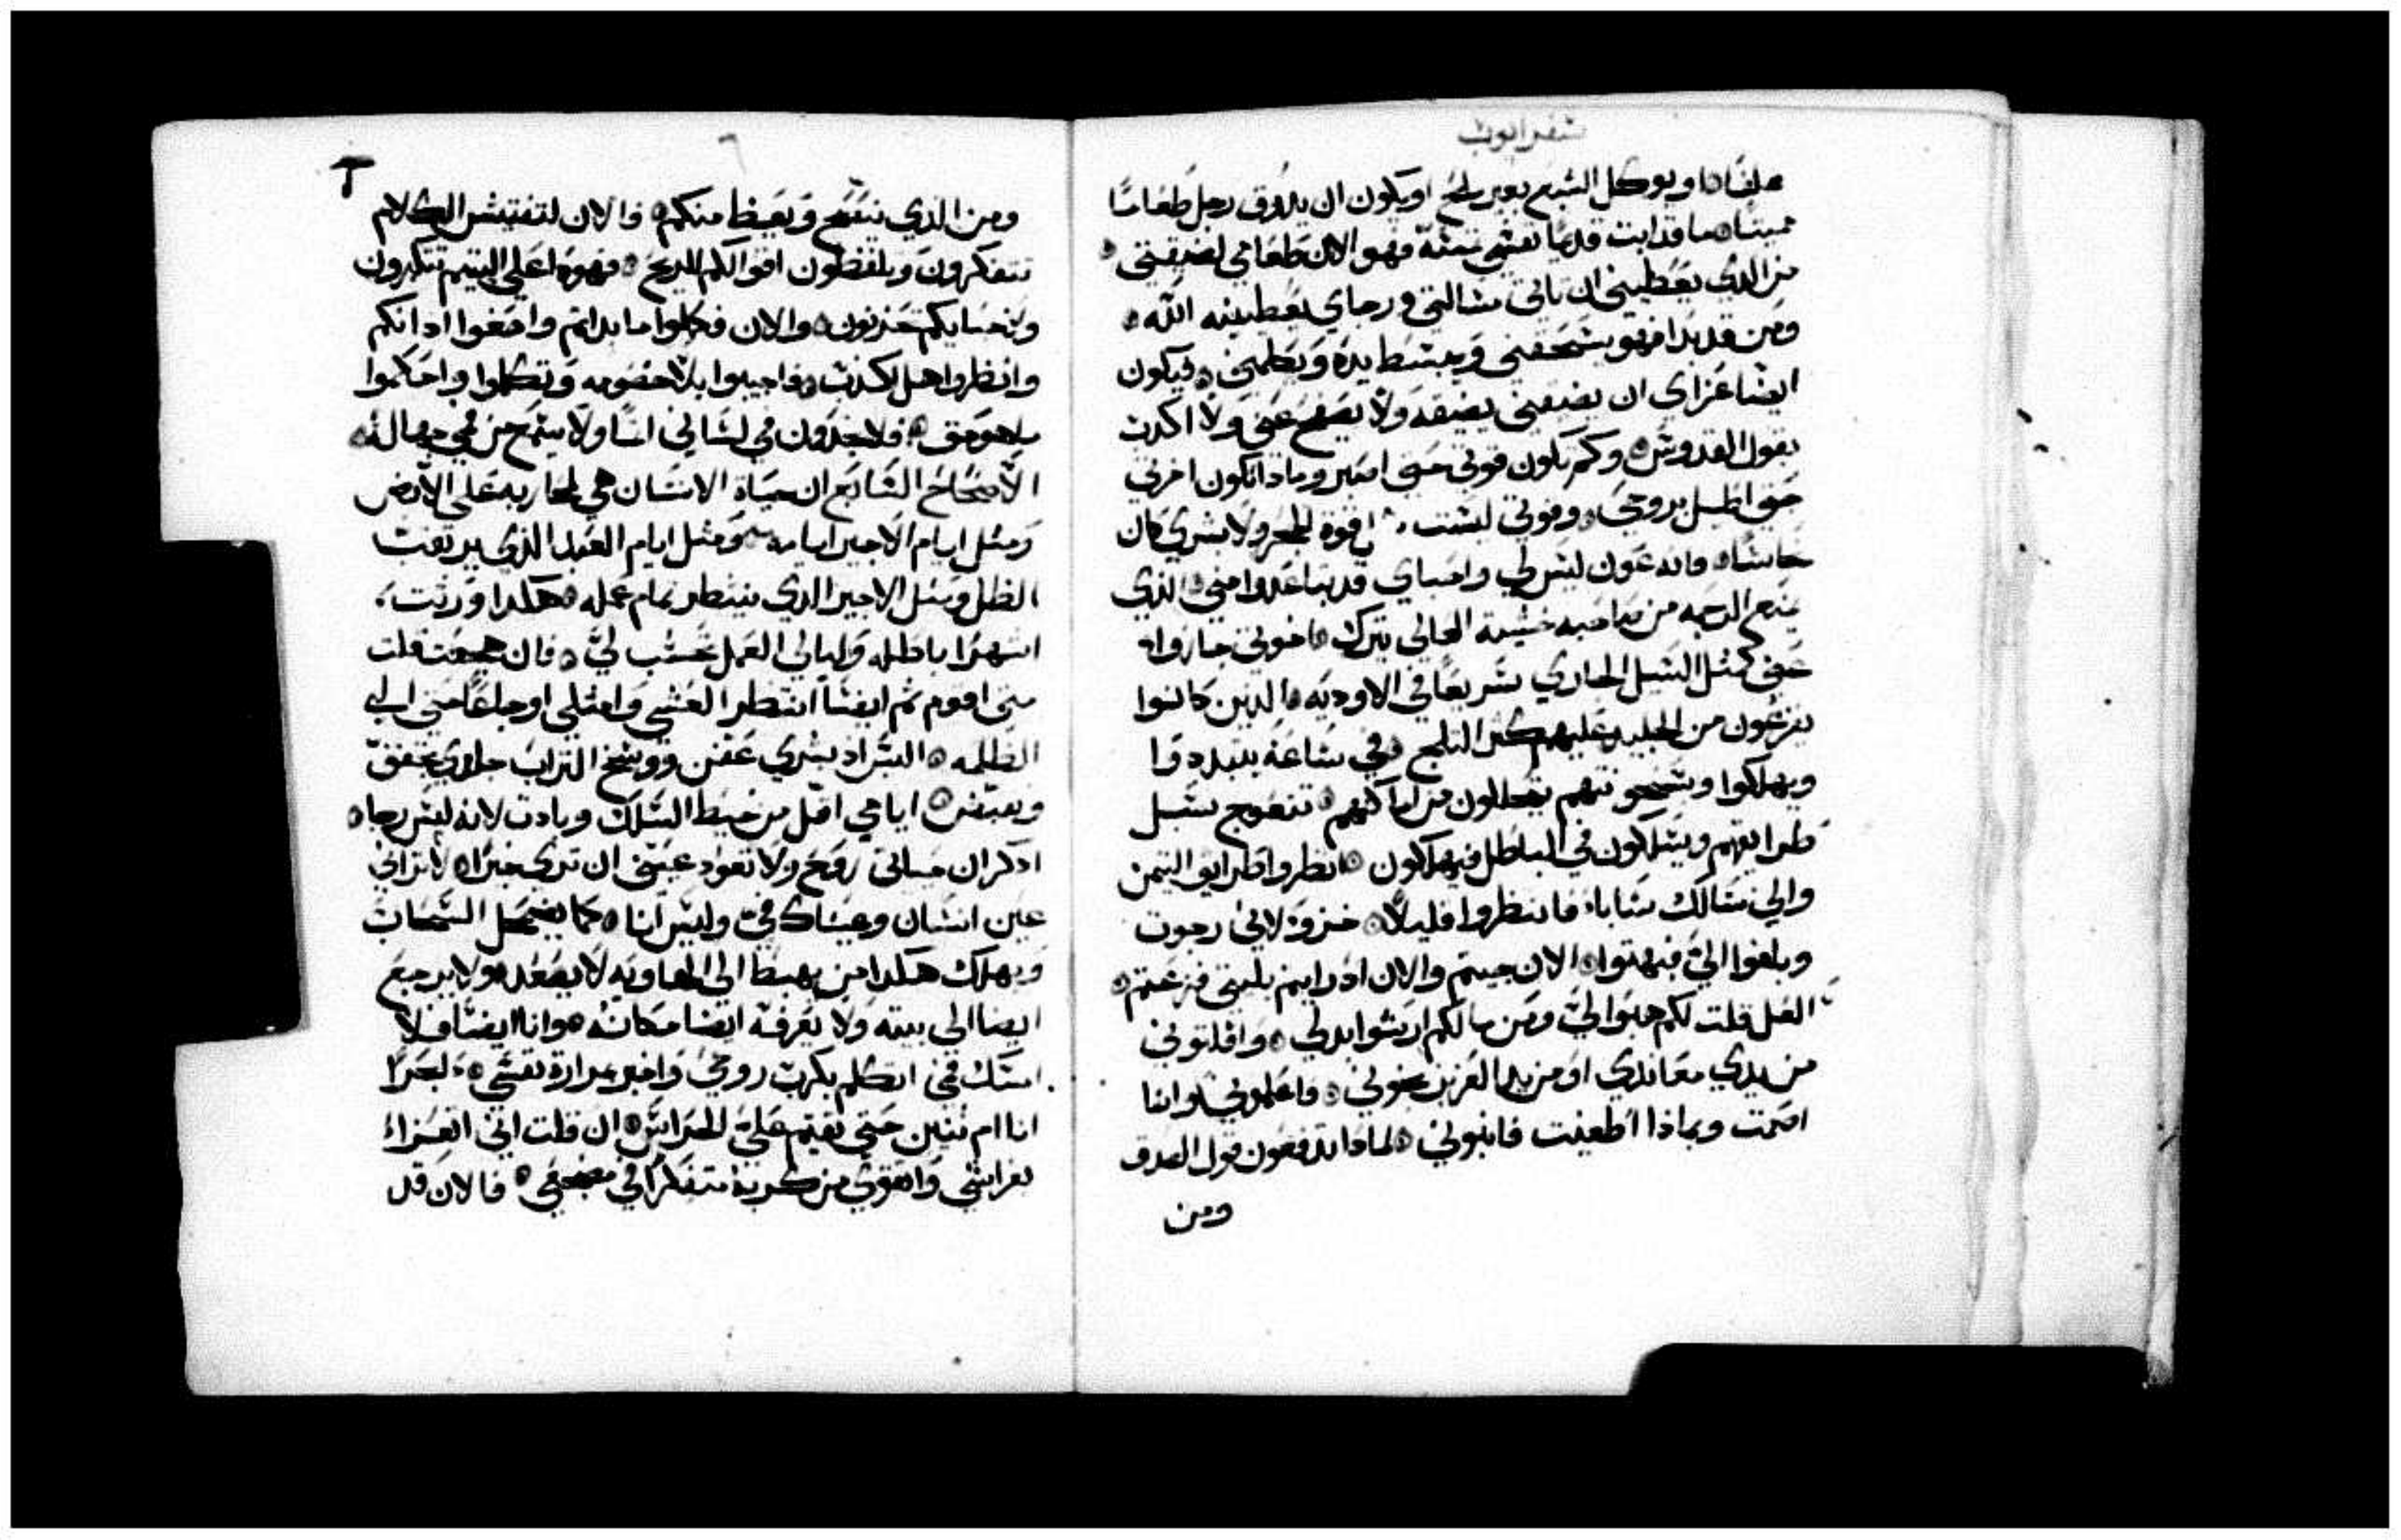 سفر ايوب
علفا ه او يوكل الشبع بغير ملح او يكون ان يدوق رجل طعاما
مميتا ه ما قد ابت قديما نفسي تمسه فهو الان طعامي لضيقتي ه
من الذي يعطيني ان تاتي مسالتي ورجاي يعطينيه الله ه
ومن قد بدا فهو يسحقني ويبسط يده ويطلمني ه فيكون
ايضا عزاي ان يضيقني بضيقه ولا يصفح عني ولا اكدب
بقول القدوس ه وكم تكون قوتي حتى اصبر وما دا تكون اخرتي
حتى اطيل بروحي ه وقوتي ليست قوة الحجر ولا بشري كان
نحاسا ه فانه عون ليس لي واحباي قد تباعدوا مني ه الذي
ينزع الرحمه من صاحبه خشية العالي يترك ه اخوتي جازوا
عني كمثل السيل الجاري سريعا في الاوديه ه الدين كانوا
يفزعون من الجليد عليهم كثر الثلج ه في ساعة يتبددوا
ويهلكوا وبسخونتهم يضحلون من اماكنهم ه تتعوج سبل
طرايقهم ويسلكون في الباطل فيهلكون ه انظروا طرايق التيمن
والي مسالك سابا ه فانتظروا قليلا ه خزو لاني رجوت
وبلغوا الي فبهتوا ه الان جيتم والان اد رايتم بليتي فزعتم ه
العل قلت لكم هبوا لي ومن مالكم ارشوا بدلي ه وافلتوني
من يدي معاندي او من يد العزيز نجوني ه فاعلموني وانا
اصمت وبماذا اطغيت فانبوني ه لمادا تدفعون قول الصدق
ومن
٦
ومن الذي ينتصح ويعيظ منكم ه فالان لتفتيش الكلام
تتفكرون وتلفظون اقوالكم للريح ه فهودا علي اليتيم تتكرون
وبحسابكم تحزنون ه والان فكلوا ما بداتم واصغوا ادانكم
وانظروا هل اكدب ه فاجيبوا بلا خصومه وتكلموا واحكموا
بما هو حق ه فلا تجدون في لساني اتما ولا يسمح من فمي جهالة ه
الاصحاح السابع ان حياة الانسان هي محاربه على الارض
ومثل ايام الاجير ايامه ومثل ايام العبد الذي يرتقب
الظل ومثل الاجير الذي ينتظر تمام عمله ه هكدا ورثت
اشهرا باطله وليالي العمل تحسب لي ه فان هجعت قلت
متى اقوم ثم ايضا انتظر العشي وامتلي اوجاعا حتى الي
الظلمه ه البس اد بشري عفن ووسخ التراب جلدي تحقق
وتعفن ه ايامي اقل من خيط السلك وبادت لانه ليس رجا ه
ادكر ان حياتي روح ولا تعود عيني ان ترى خيرا ه لا تراني
عين انسان وعيناك في وليس انا ه كما يضمحل السحاب
ويهلك هكدا من يهبط الي الهاويه لا يصعد ه ولا يرجع
ايضا الي بيته ولا يعرفه ايضا مكانه ه وانا ايضا فلا
امسك فمي اتكلم بكرب روحي واخبر بمرارة نفسي ه لبحرا
انا ام تنين حتى تقيم علي الحراس ه ان قلت اني اتعزا
بفراشي واتقوي من كربة متفكرا في مضجعي ه فالان قد